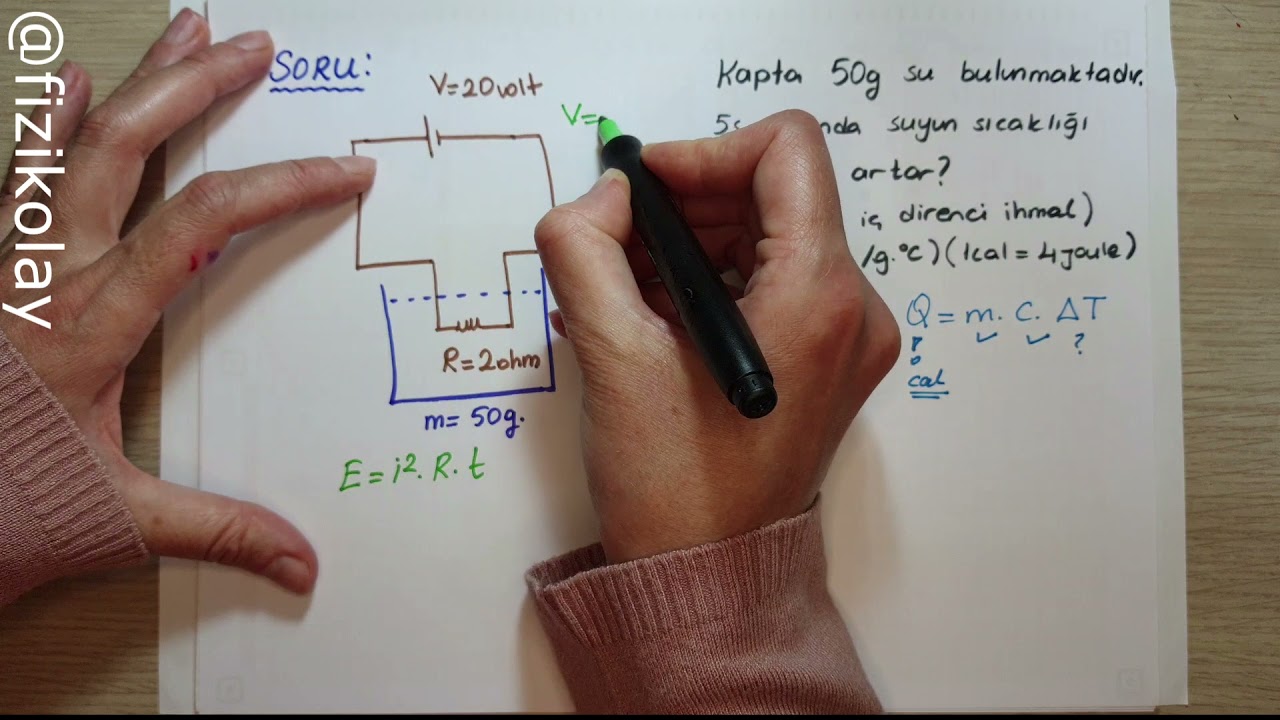 @fizikolay
SORU:
V=20volt
V=
R=2ohm
m= 50g.
E= i². R. t
Kapta 50g su bulunmaktadır.
suyun sıcaklığı
artar?
iç direnci ihmal)
/g.°C) (1cal = 4 joule)
Q = m. C. ΔT
?
cal